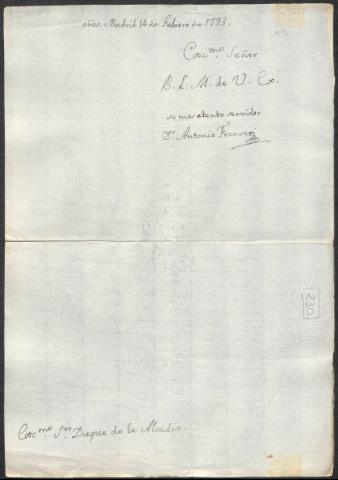 años. Madrid 14 de Febrero de 1793.
Exc.mo Señor
B. L. M. de V. E.
su mas atento servidor
D.n Antonio Franseri
230
Exc.mo S.or Duque de la Alcudia.